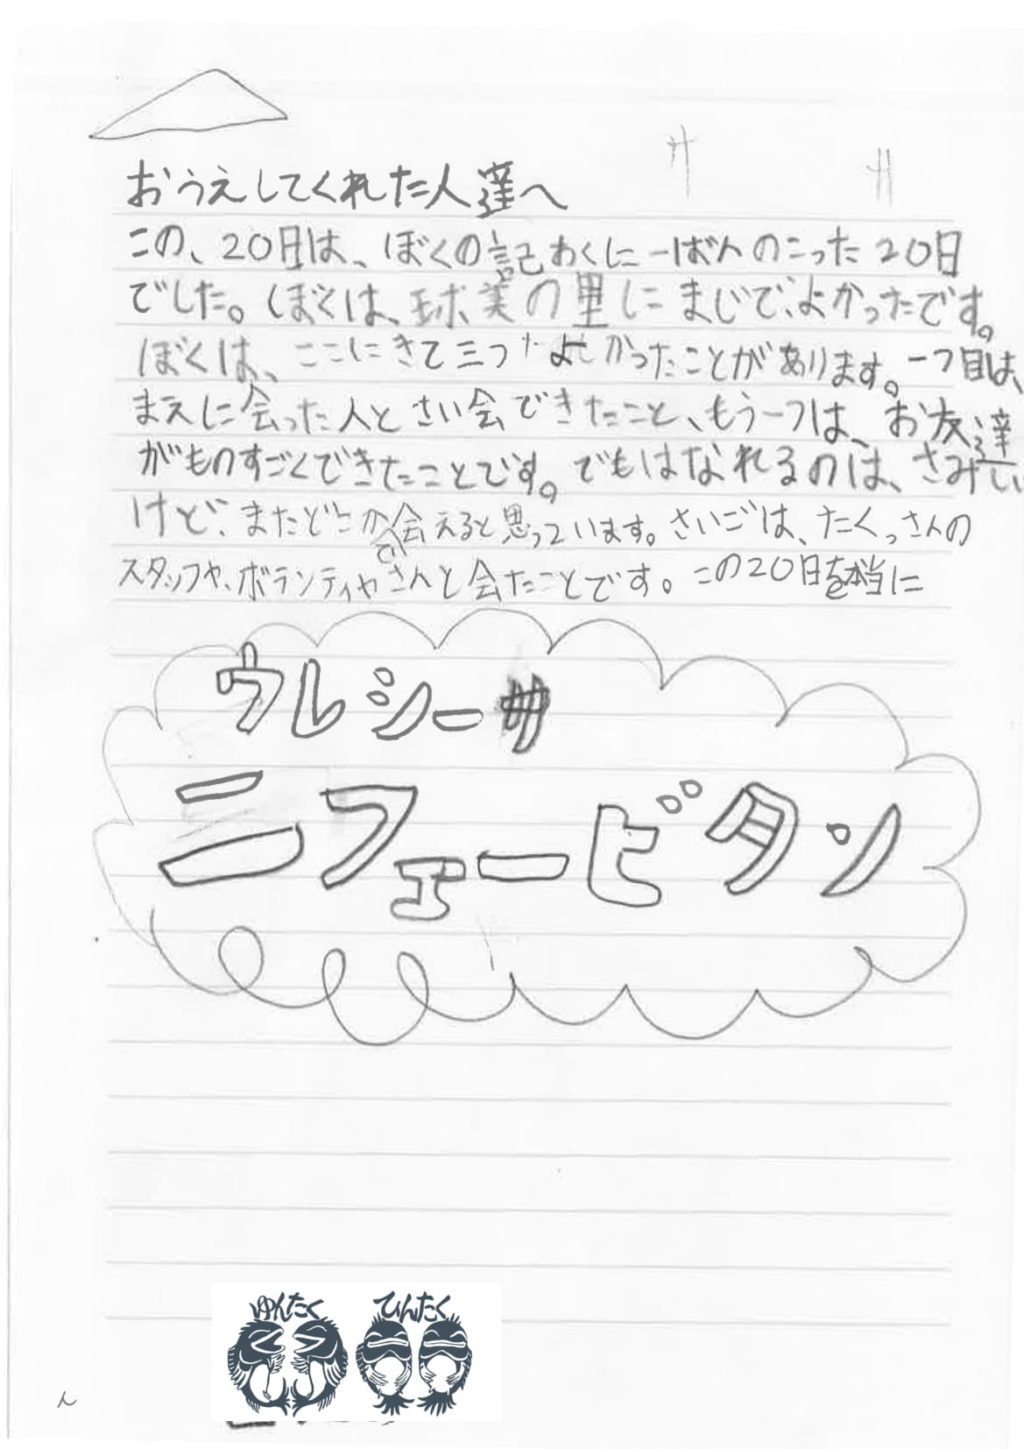 おうえしてくれた人達へ
この、20日は、ぼくの記おくに一ばんのこった20日
でした。ぼくは、球美の里にまじで、よかったです。
ぼくは、ここにきて三つよかったことがあります。一つ目は、
まえに会った人とさい会できたこと、もう一つは、お友達
がものすごくできたことです。でもはなれるのは、さみしい
けど、またどこかで会えると思っています。さいごは、たくっさんの
スタッフや、ボランティヤさんと会たことです。この20日を本当に
ウレシー
ニフェービタン
ゆんたく ひんたく